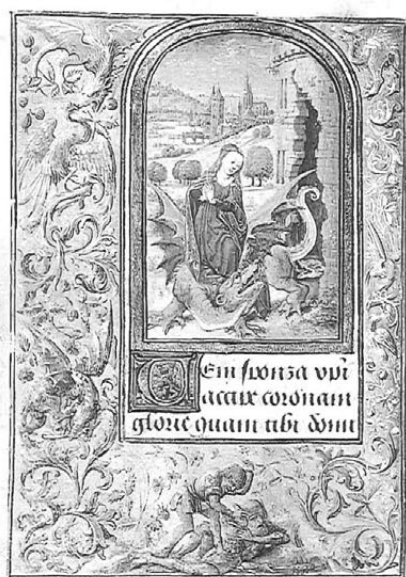 VEni sponza xpi
accipe coronam
glorie quam tibi domi